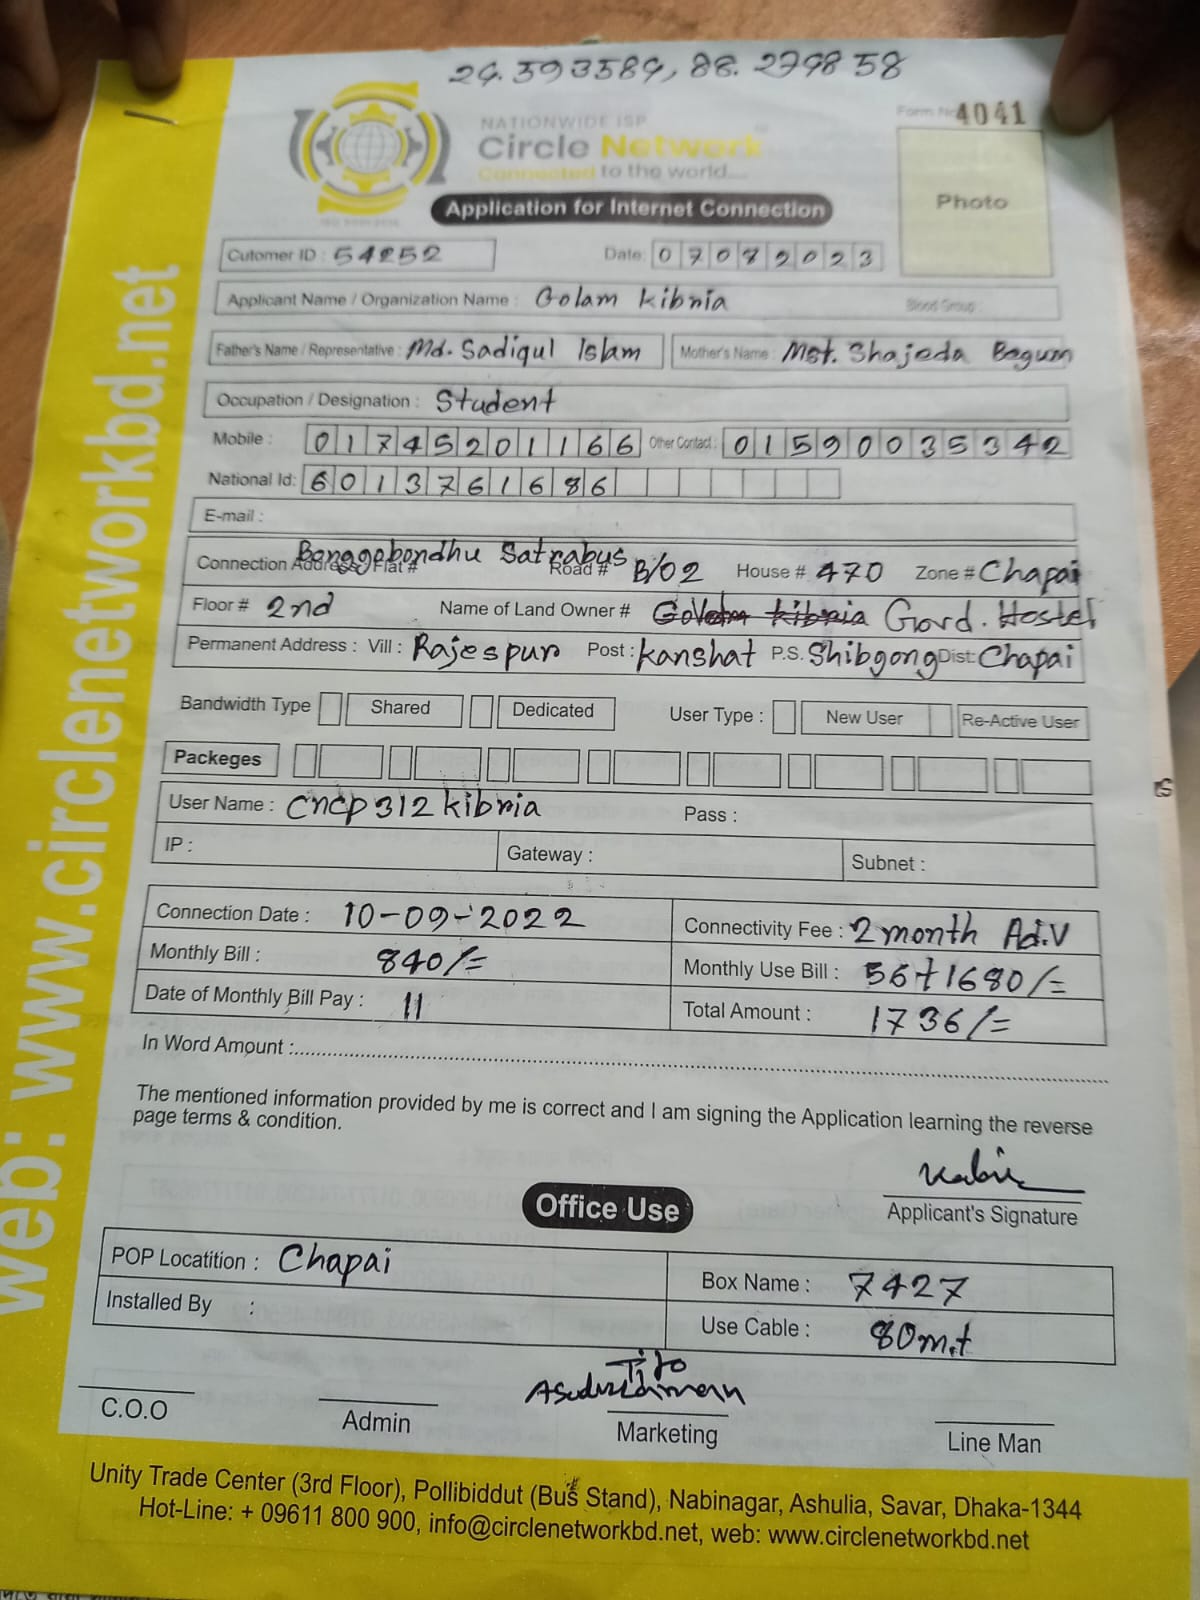 24.593584, 88.279858
Form No 4041
NATIONWIDE ISP
Circle Network
Connected to the world....
Photo
Application for Internet Connection
Cutomer ID : 54252 Date: 07082023
Applicant Name / Organization Name : Golam Kibria Blood Group :
Father's Name / Representative : Md. Sadiqul Islam Mother's Name : Mst. Shajeda Begum
Occupation / Designation : Student
Mobile : 01745201166 Other Contact : 01590035342
National Id: 6013761686
E-mail :
Connection Address: Flat # Banggobondhu Satrabus Road # B/02 House # 470 Zone # Chapai
Floor # 2nd Name of Land Owner # Golam Kibria Gord. Hostel
Permanent Address : Vill : Rajespur Post : Kanshat P.S. Shibgong Dist: Chapai
Bandwidth Type Shared Dedicated User Type : New User Re-Active User
Packeges
User Name : cncp312kibria Pass :
IP : Gateway : Subnet :
Connection Date : 10-09-2022 Connectivity Fee : 2 month Ad.V
Monthly Bill : 840/= Monthly Use Bill : 56+1680/=
Date of Monthly Bill Pay : 11 Total Amount : 1736/=
In Word Amount :
The mentioned information provided by me is correct and I am signing the Application learning the reverse
page terms & condition.
Applicant's Signature
Office Use
POP Locatition : Chapai Box Name : 7427
Installed By : Use Cable : 80m.t
Tito
Asaduzzaman
C.O.O Admin Marketing Line Man
Unity Trade Center (3rd Floor), Pollibiddut (Bus Stand), Nabinagar, Ashulia, Savar, Dhaka-1344
Hot-Line: + 09611 800 900, info@circlenetworkbd.net, web: www.circlenetworkbd.net
web: www.circlenetworkbd.net